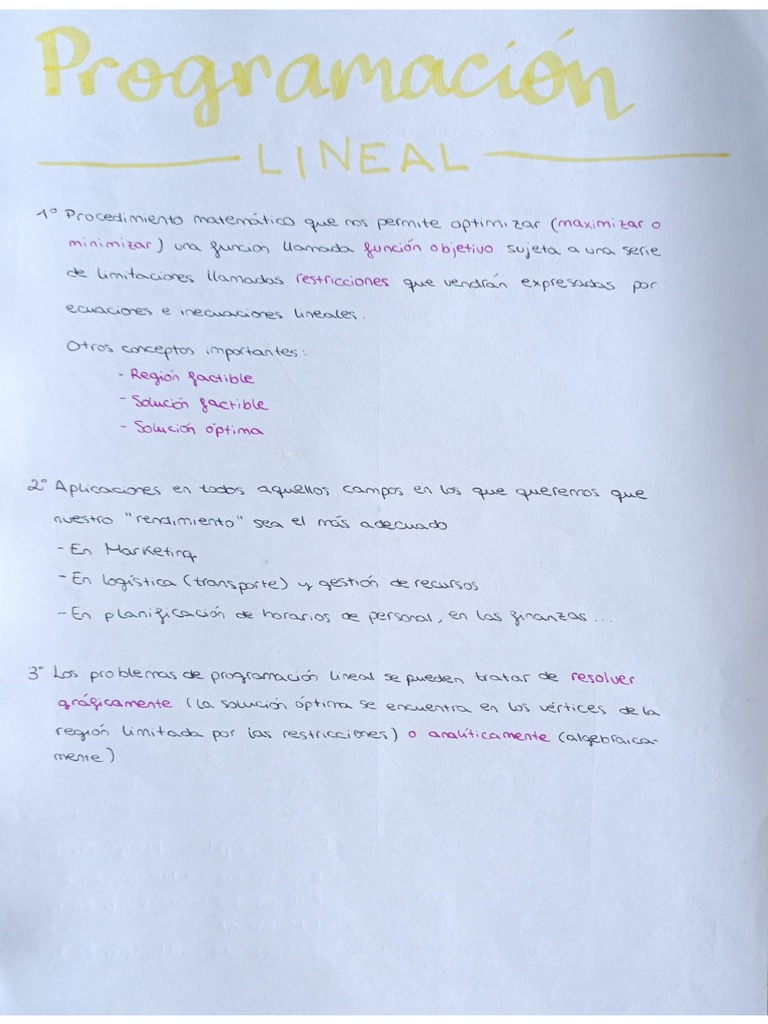 Programación
LINEAL
1º Procedimiento matemático que nos permite optimizar (maximizar o
minimizar) una función llamada función objetivo sujeta a una serie
de limitaciones llamadas restricciones que vendrán expresadas por
ecuaciones e inecuaciones lineales.
Otros conceptos importantes:
- Región factible
- Solución factible
- Solución óptima
2º Aplicaciones en todos aquellos campos en los que queremos que
nuestro "rendimiento" sea el más adecuado
- En Marketing
- En logística (transporte) y gestión de recursos
- En planificación de horarios de personal, en las finanzas...
3º Los problemas de programación lineal se pueden tratar de resolver
gráficamente (la solución óptima se encuentra en los vértices de la
región limitada por las restricciones) o analíticamente (algebraica-
mente)